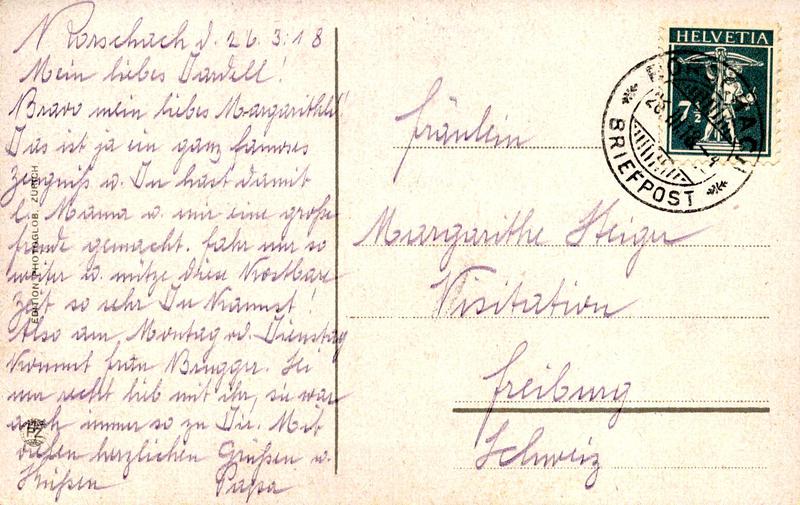 Rorschach d. 26.3.18
Mein liebes
Bravo mein liebes Margarithli!
Das ist ja ein ganz famoses
Zeugniß u. Du hast damit
l. Mama u. mir eine große
freude gemacht. fahr nur so
weiter u. nütze diese Kostbare
Zeit so sehr Du Kannst!
Also am Montag od. Dienstag
Kommt frau Brugger. Sei
nur recht lieb mit ihr, sie war
auch immer so zu Dir. Mit
vielen herzlichen Grüßen u.
Küßen Papa
EDITION PHOTOGLOB. ZÜRICH
PZ
HELVETIA
7½
RORSCHACH
BRIEFPOST
fräulein
Margarithe Steiger
Visitation
freiburg
Schweiz